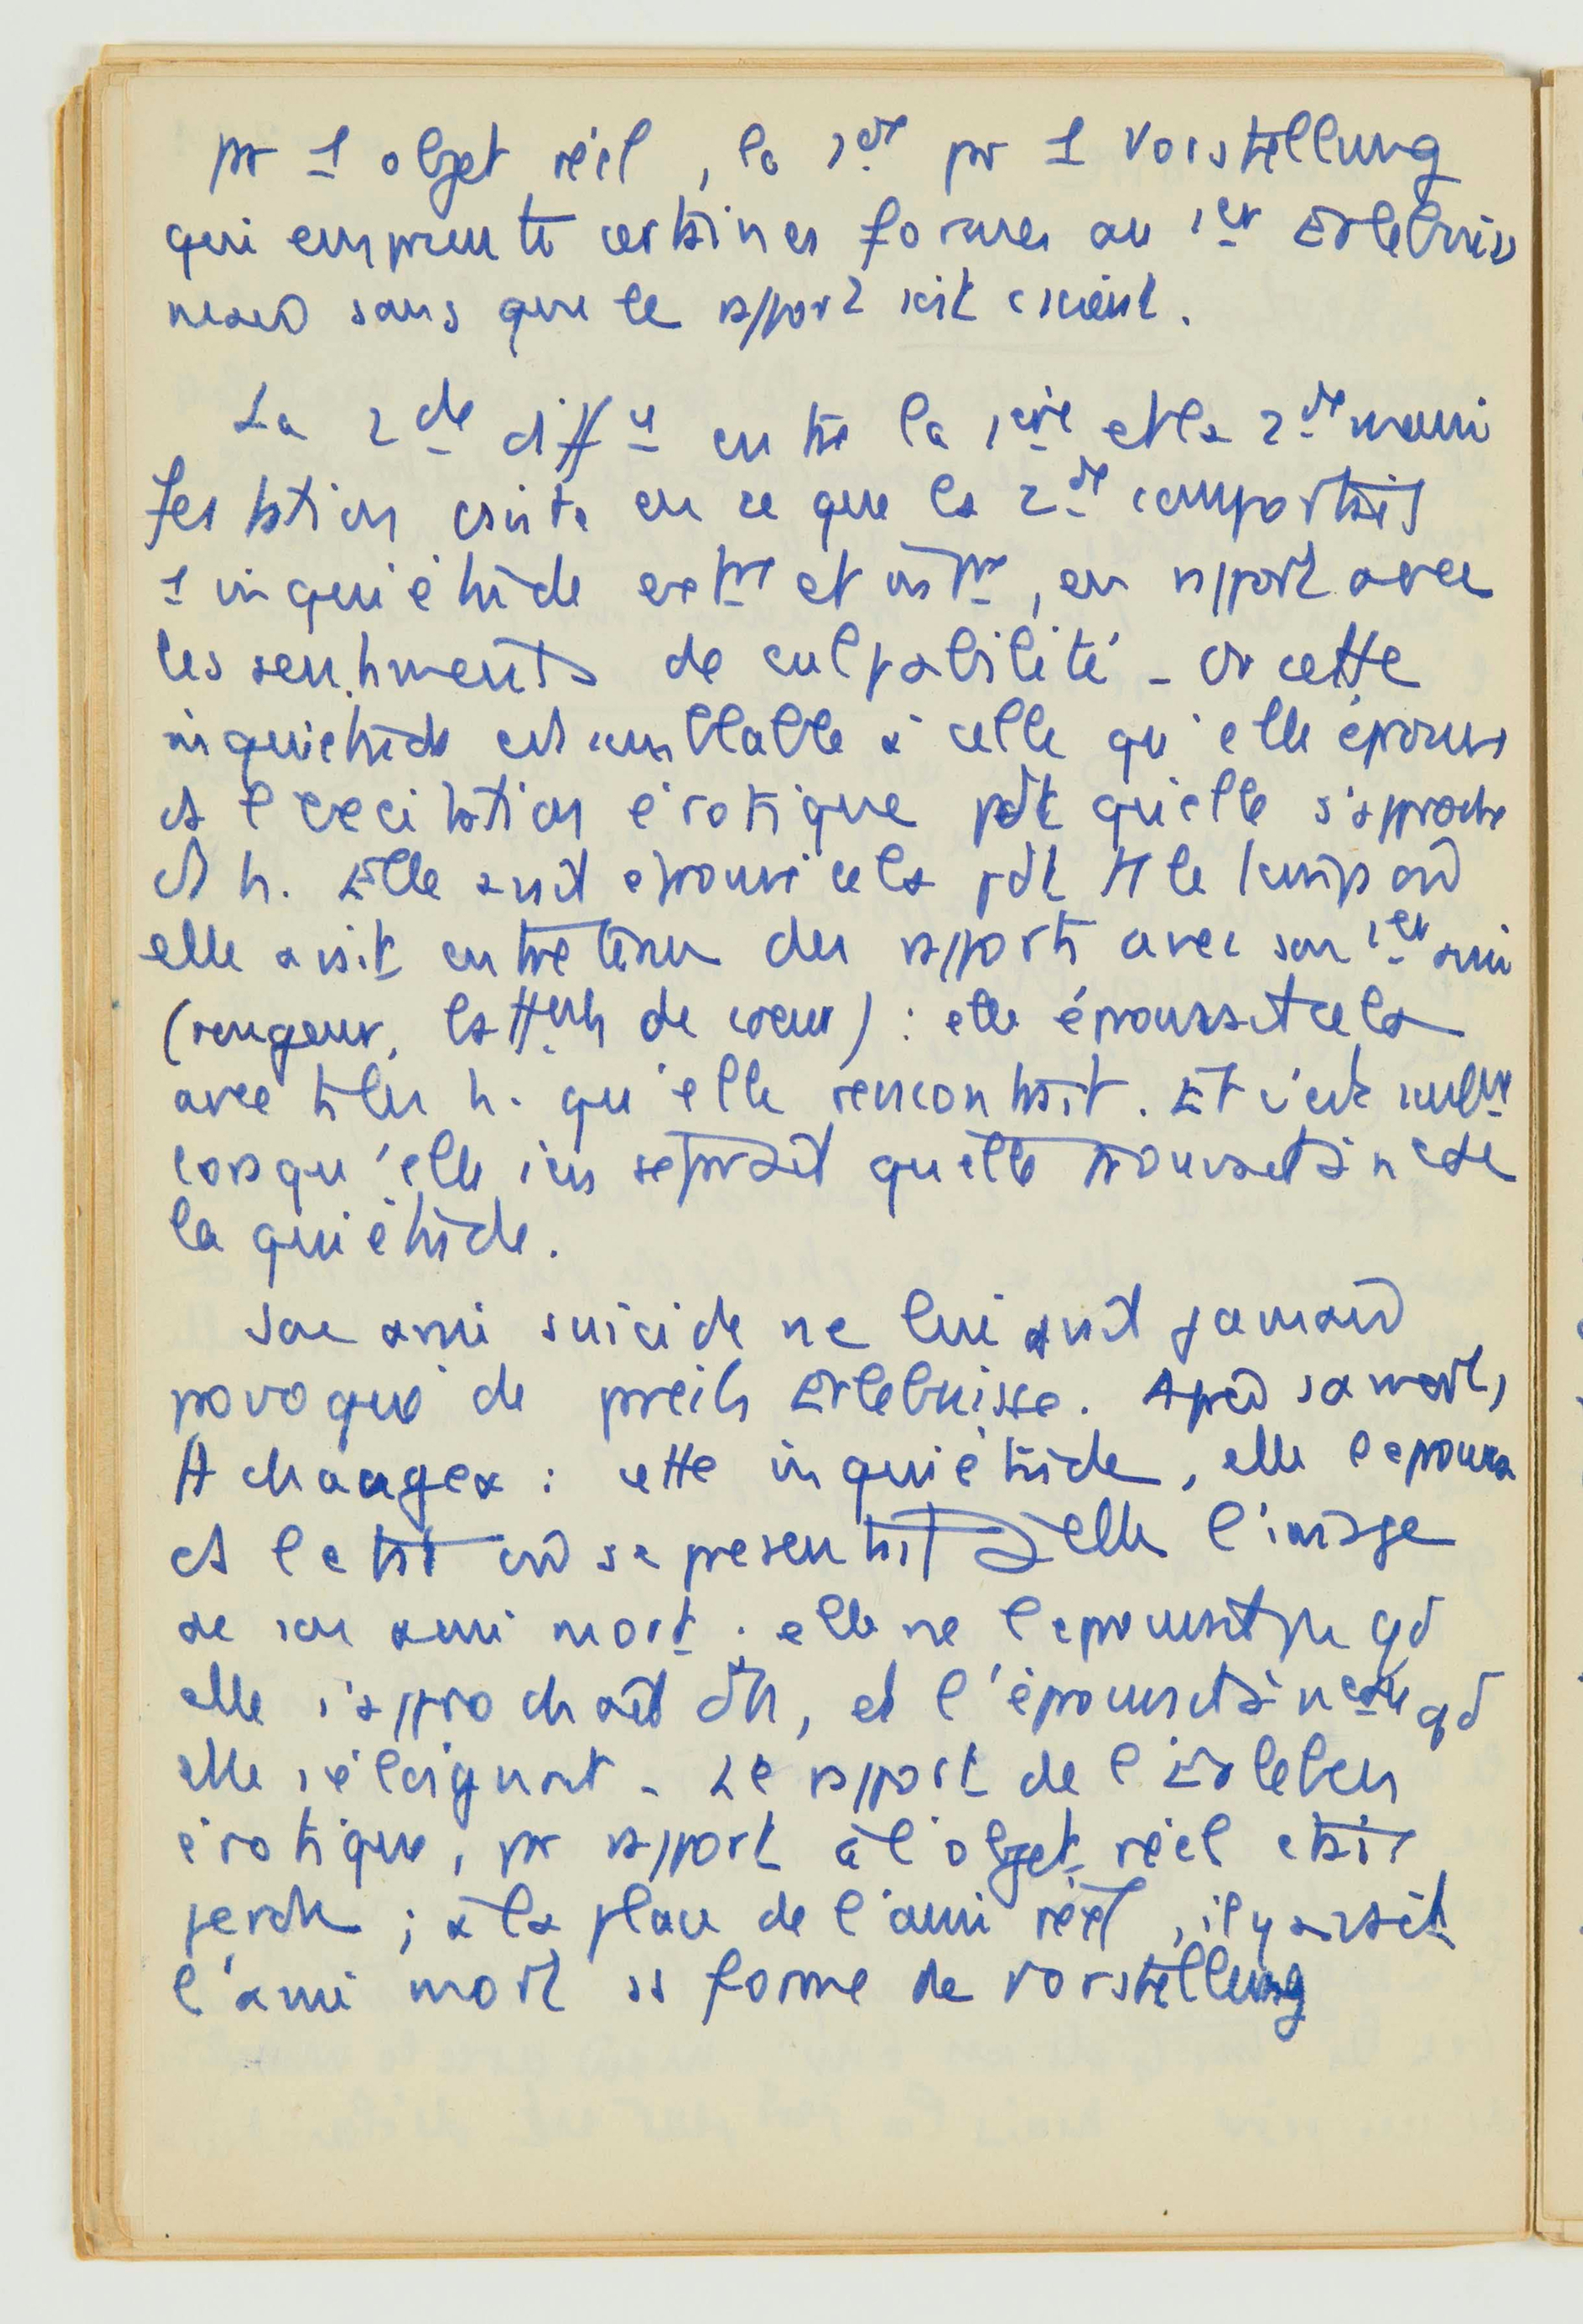 pr 1 objet réel, la 2de pr 1 Vorstellung
qui emprunte certaines formes au 1er Erlebnis
mais sans que le rapport soit cscient.
La 2de diffce entre la 1ère et la 2de mani
festation csiste en ce que la 2de comportait
1 inquiétude ext et int, en rapport avec
les sentiments de culpabilité - Or cette
inquiétude est semblable à celle qu'elle éprouve
ds l'excitation érotique pdt qu'elle s'approche
d'1 h. Elle avait éprouvé cela pdt tt le temps où
elle avait entretenu des rapports avec son 1er ami
(rougeur, de cœur) : elle éprouvait cela
avec ts les h. qu'elle rencontrait. Et c'est seulmt
lorsqu'elle s'en séparait qu'elle trouvait à ncau
la quiétude.
Son ami suicidé ne lui avait jamais
provoqué de pareils Erlebnisse. Après sa mort,
tt changea : cette inquiétude, elle l'éprouva
ds l'état où se présentait à elle l'image
de son ami mort. elle ne l'éprouvait plus qd
elle s'approchait d'1 h, et l'éprouvait à ncau qd
elle s'éloignait - Le rapport de l'Erleben
érotique, pr rapport à l'objet réel était
perdu ; à la place de l'ami réel, il y avait
l'ami mort ss forme de Vorstellung